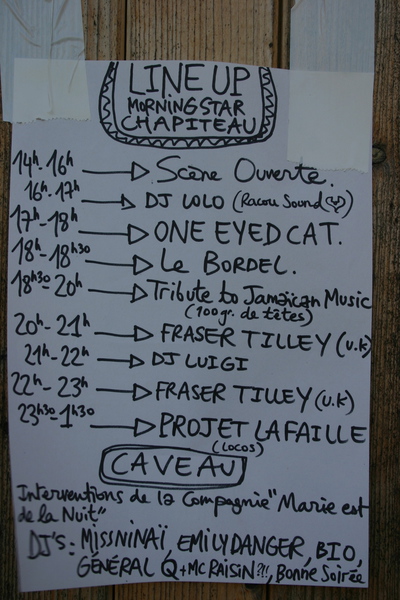 LINE UP
MORNINGSTAR
CHAPITEAU
14h-16h → Scène Ouverte.
16h-17h → DJ LOLO (Racou Sound)
17h-18h → ONE EYED CAT.
18h-18h30 → Le BORDEL.
18h30-20h → Tribute to Jamaïcan Music
(100gr. de têtes)
20h-21h → FRASER TILLEY (U.K)
21h-22h → DJ LUIGI
22h-23h → FRASER TILLEY (U.K)
23h30-1h30 → PROJET LAFAILLE
(LOCOS)
CAVEAU
Interventions de la Compagnie "Marie est
de la Nuit"
DJ's: MISSNINAÏ, EMILYDANGER, BIO,
GÉNÉRAL Q+MC RAISIN ?!!, Bonne Soirée